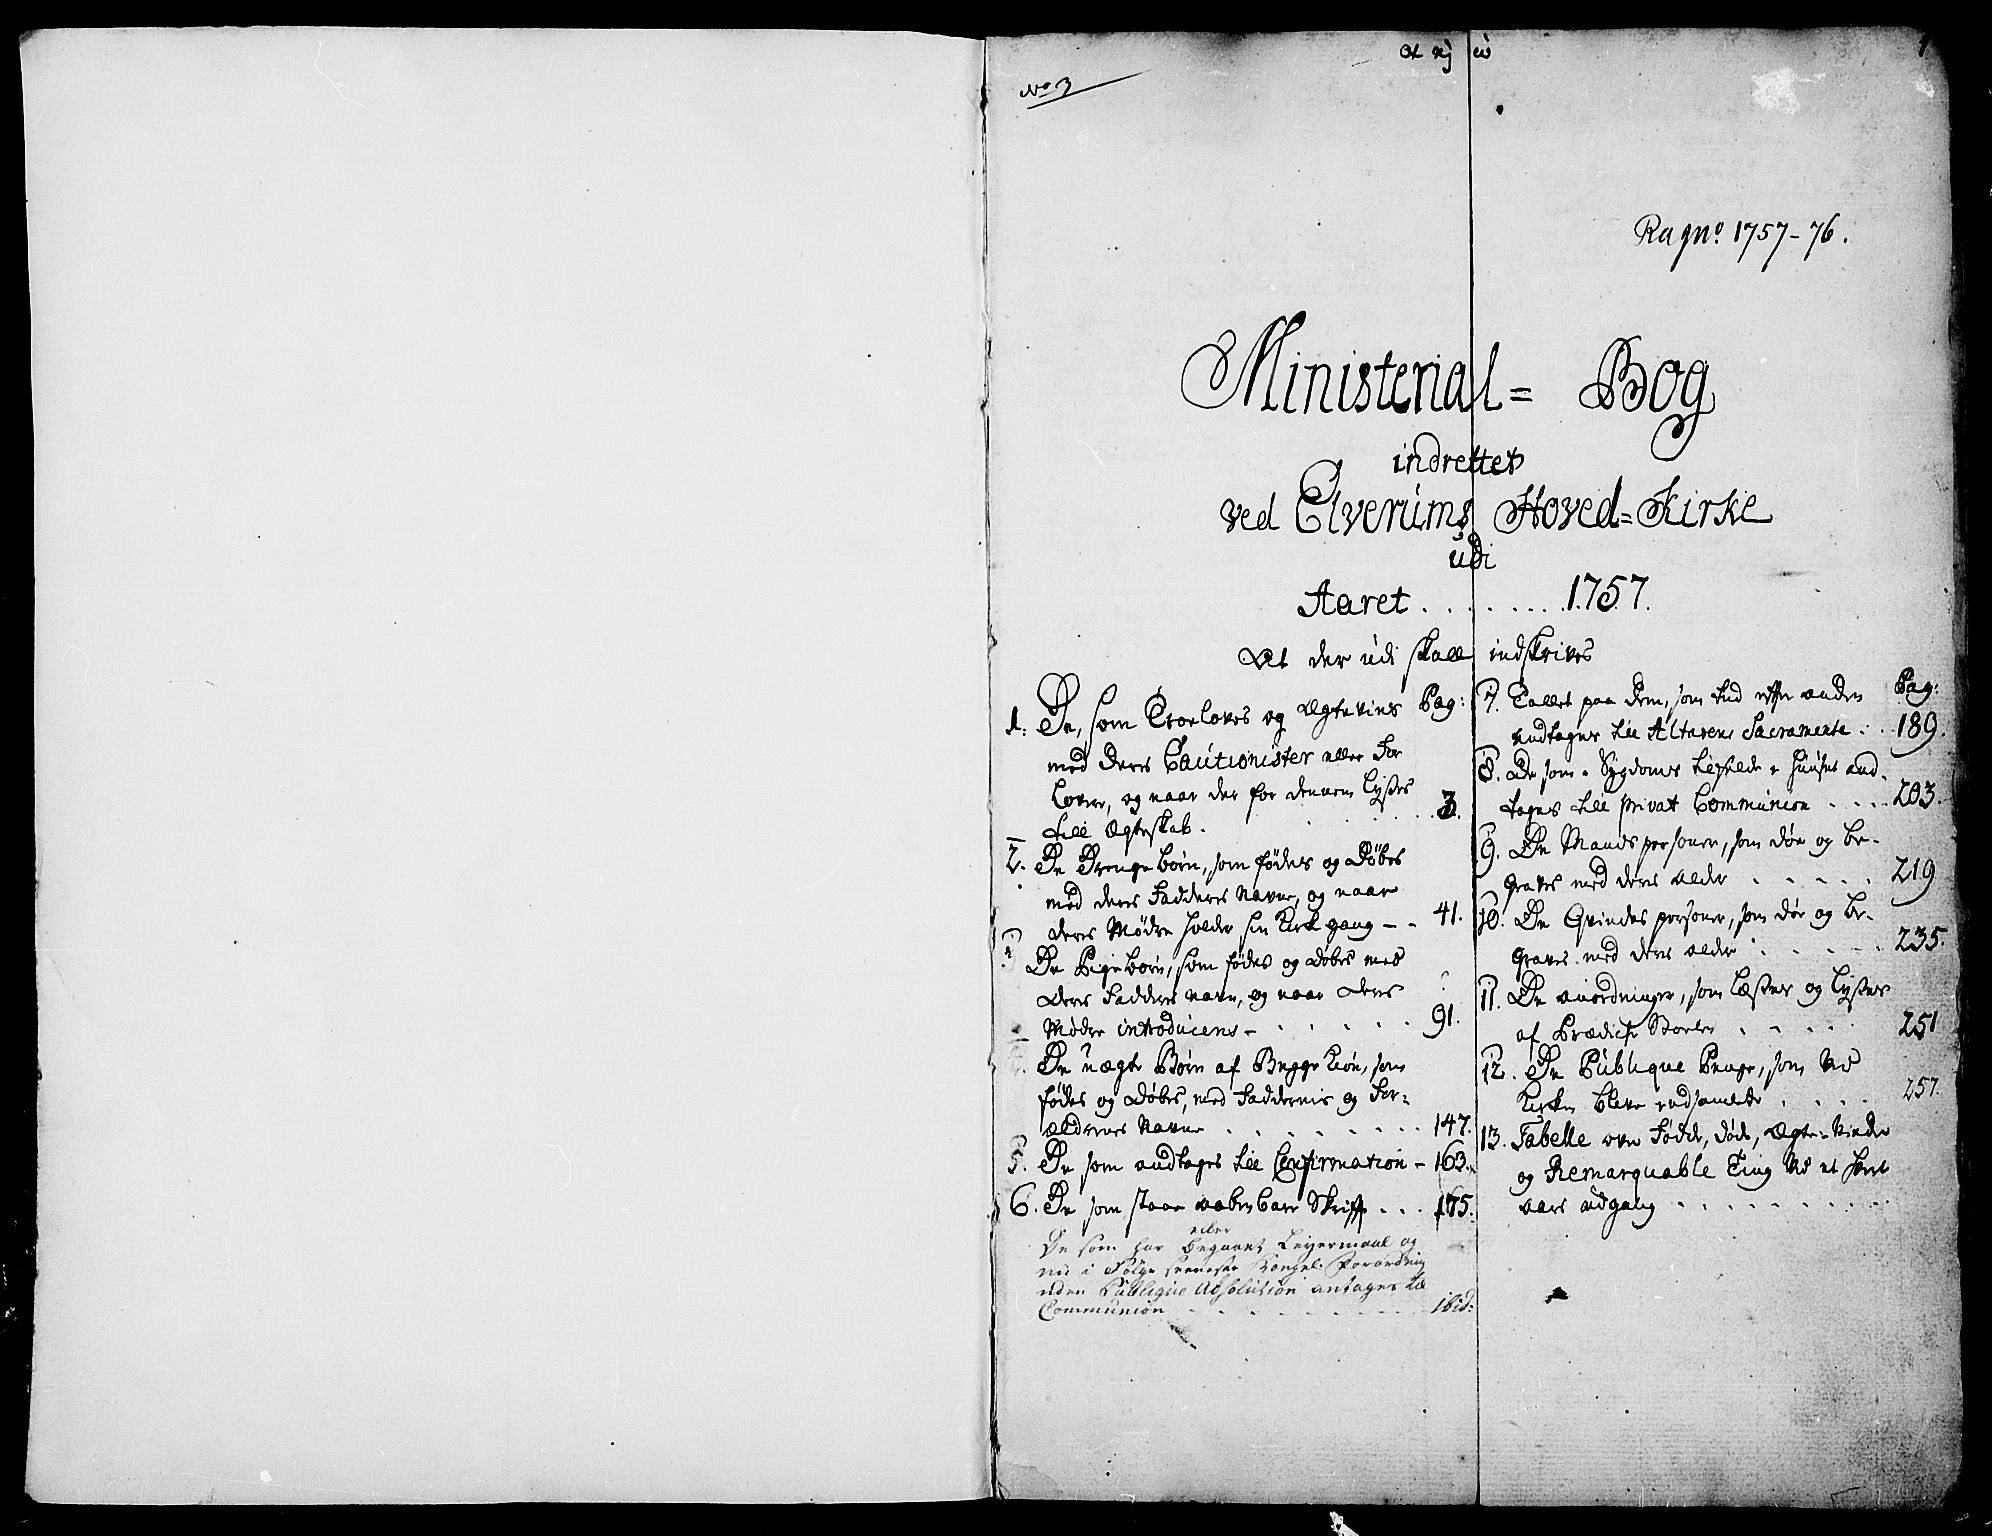 No 3
1
Ragno. 1757-76.
Ministerial= Bog
indrettet
ved Elverums Hoved=Kirke
udi
Aaret . . . . . . . . 1757.
At der udi skall indskrives
Pag:
1. De, som Troeloves og Ægtevies
med deres Cautionister eller For
lovere, og naar der for dennem lyses
till Ægteskab. . . . . . 3.
2. De Drenge børn, som fødes og døbes
med deres Fadderes Navne, og naar
deres Mødre holder sin Kirkgang - - 41.
3. De Pigebørn, som fødes og døbes med
deres Fadderes navn, og naar deres
Mødre introduceres - . . . . . 91.
4. De uægte Børn af Begge Kiøn, som
fødes og døbes, med Faddernis og For=
ældrenes Navne . . . . . . . . . 147.
5. De som andtages till Confirmation - 163.
6. De som staar aabenbare Skrifte . . . 175.
eller
De som har begaaet Leyermaal og
nu i Følge seeneste Kongel. Forordning
uden Publique Absolution antages til
Communion - - - - - - - - - ibid:
Pag:
7. Tallet paa dem, som tiid efter anden
andtages till Altarens Sacramente . . 189.
8. De som i Sygdoms tilfelde i Huuset and-
tages till privat Communion . . . . 203.
9. De Mandspersoner, som døe og be-
graves med deres alder . . . . . 219
10. De Qvindes personer, som døe og be-
graves med deres alder . . . . . 235.
11. De anordninger, som læses og lyses
af Prædicke Stoelen . . . . . 251
12. De Publique Penge, som ved
Kirken bleve indsamlede . . . . 257.
13. Tabelle over Fødde, døde, Ægte-viede
og Remarquable Ting ved et hvert
aars udgang . . . . . . . . . .